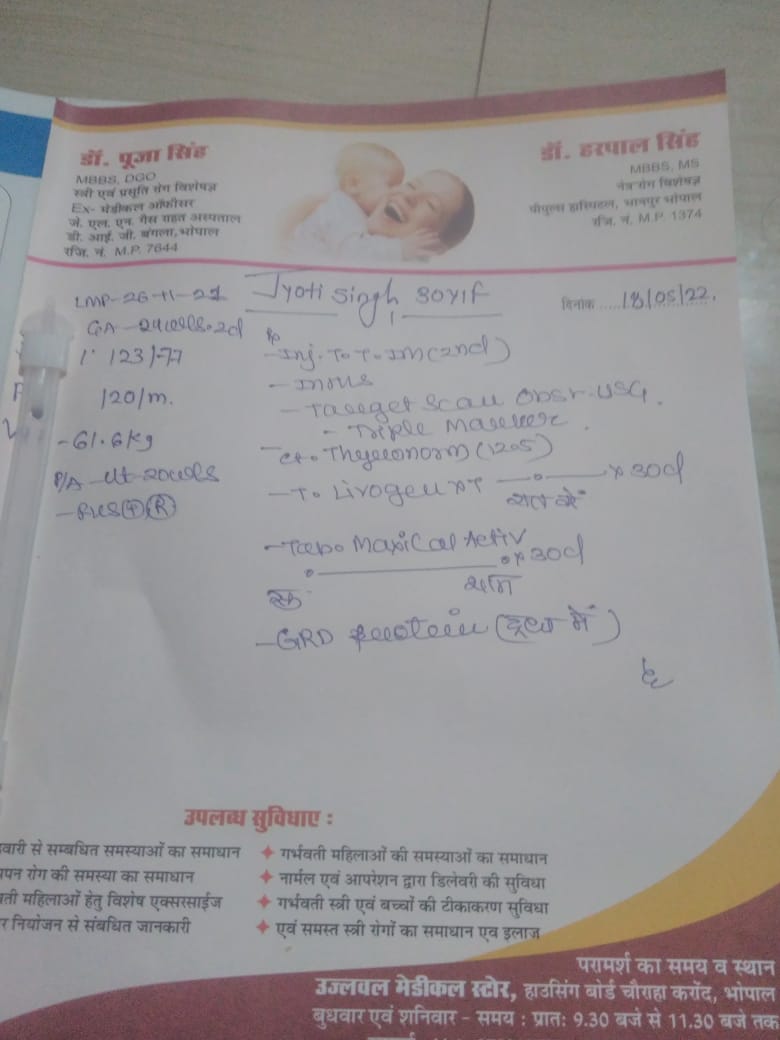 डॉ. पूजा सिंह
MBBS, DGO
स्त्री एवं प्रसूति रोग विशेषज्ञ
Ex- मेडीकल ऑफीसर
जे. एल. एन. गैस राहत अस्पताल
डी. आई. जी. बंगला, भोपाल
रजि. नं. M.P. 7644
डॉ. हरपाल सिंह
MBBS, MS
नेत्र रोग विशेषज्ञ
पीपुल्स हास्पिटल, भानपुर भोपाल
रजि. नं. M.P. 1374
Jyoti Singh 30y/F
दिनांक 18/05/22.
LMP-26-11-21
GA - 24wks.2d
123/77
120/m.
-61.6kg
P/A - Ut-20wks
- FHS(+)(R)
- Inj. T.T. IM (2nd)
- Target Scan Obst. USG.
- Triple Marker.
Thyronorm (12.5)
- T. Livogen XT x 30d
रात में
- Tab. Maxical Activ
x 30d
शाम
- GRD protein (दूध में)
उपलब्ध सुविधाए :
वारी से सम्बधित समस्याओं का समाधान
पन रोग की समस्या का समाधान
ती महिलाओं हेतु विशेष एक्सरसाईज
र नियोजन से संबधित जानकारी
गर्भवती महिलाओं की समस्याओं का समाधान
नार्मल एवं आपरेशन द्वारा डिलेवरी की सुविधा
गर्भवती स्त्री एवं बच्चों की टीकाकरण सुविधा
एवं समस्त स्त्री रोगों का समाधान एव इलाज
परामर्श का समय व स्थान
उज्लवल मेडीकल स्टोर, हाउसिंग बोर्ड चौराहा करोंद, भोपाल
बुधवार एवं शनिवार - समय : प्रात: 9.30 बजे से 11.30 बजे तक